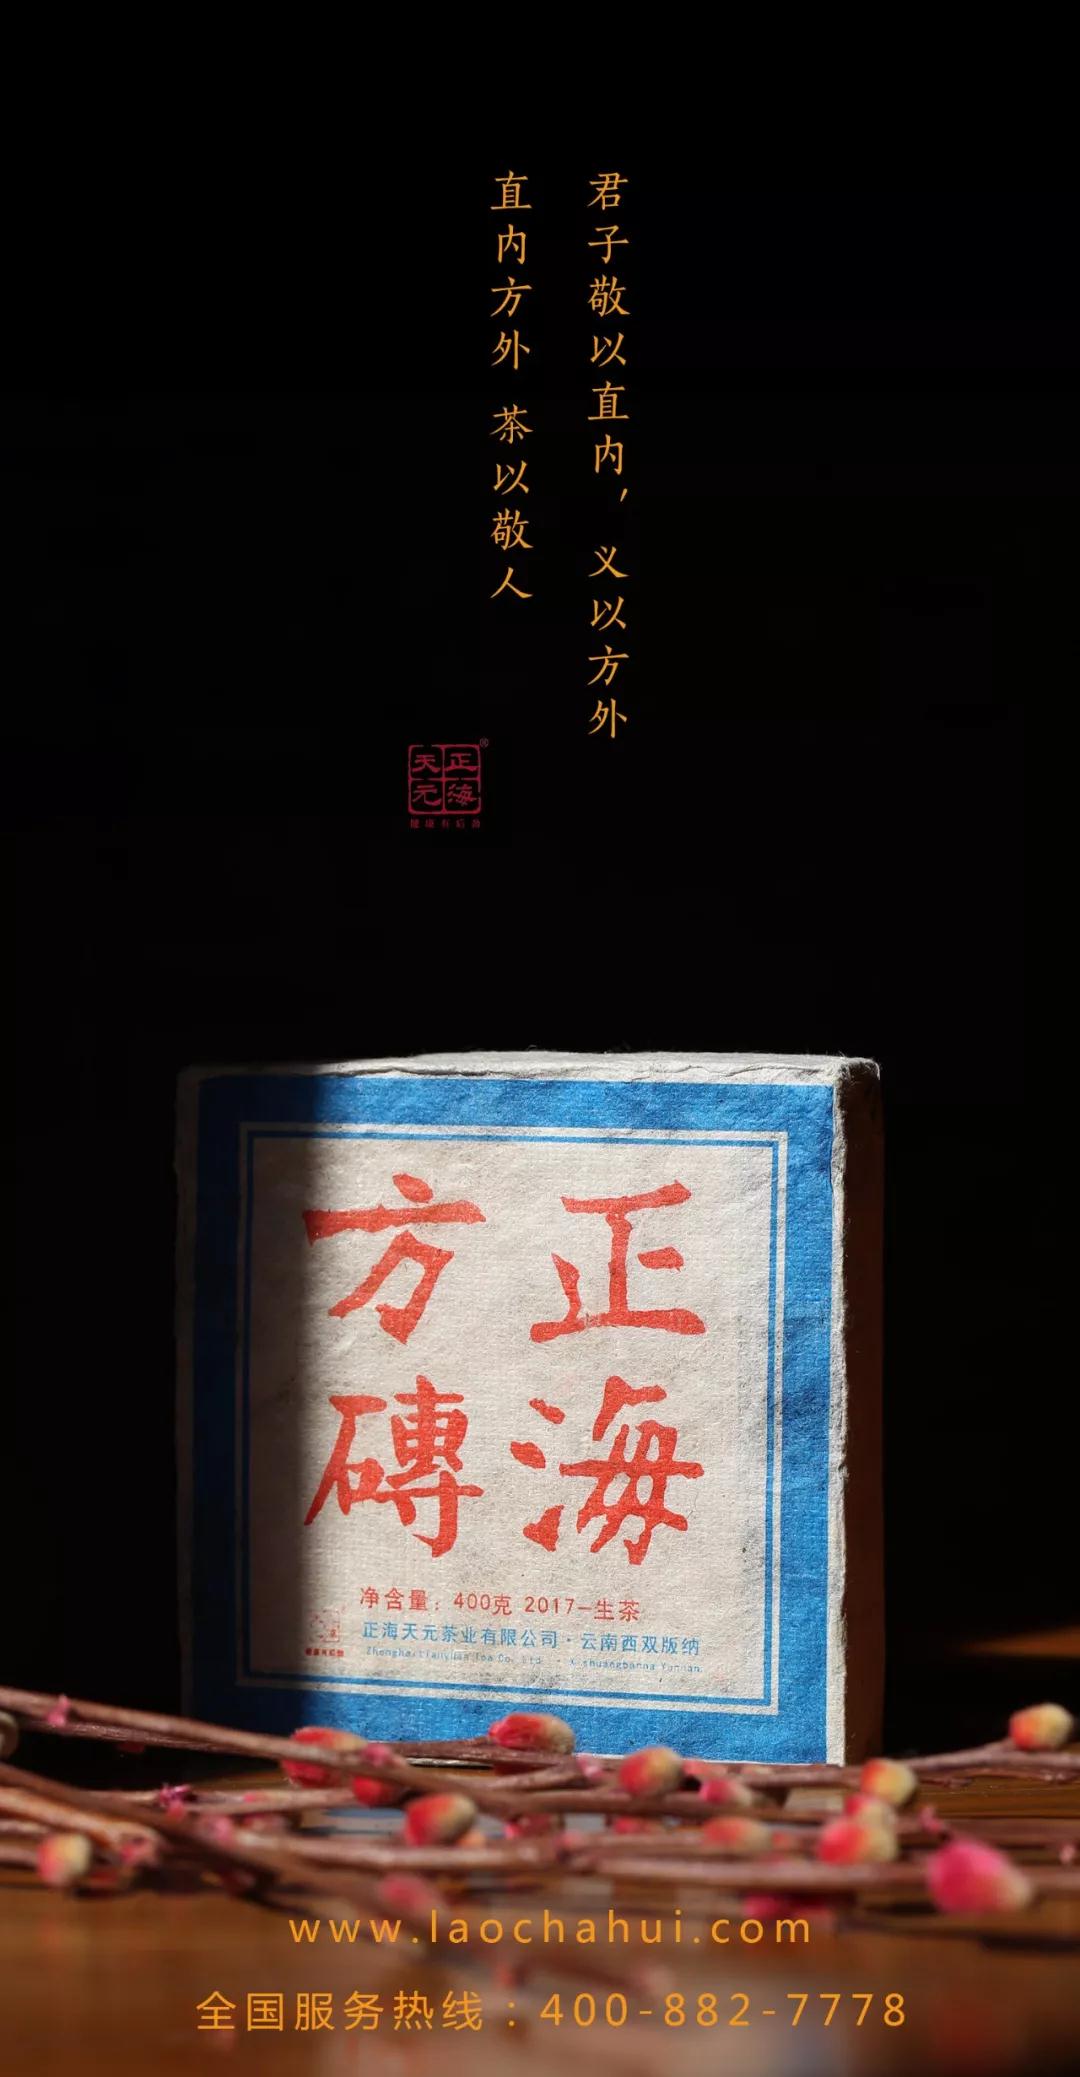 君子敬以直内，义以方外
直内方外 茶以敬人
正海
天元
健康有后劲
正海
方磚
净含量：400克 2017-生茶
正海天元茶业有限公司·云南西双版纳
www.laochahui.com
全国服务热线：400-882-7778